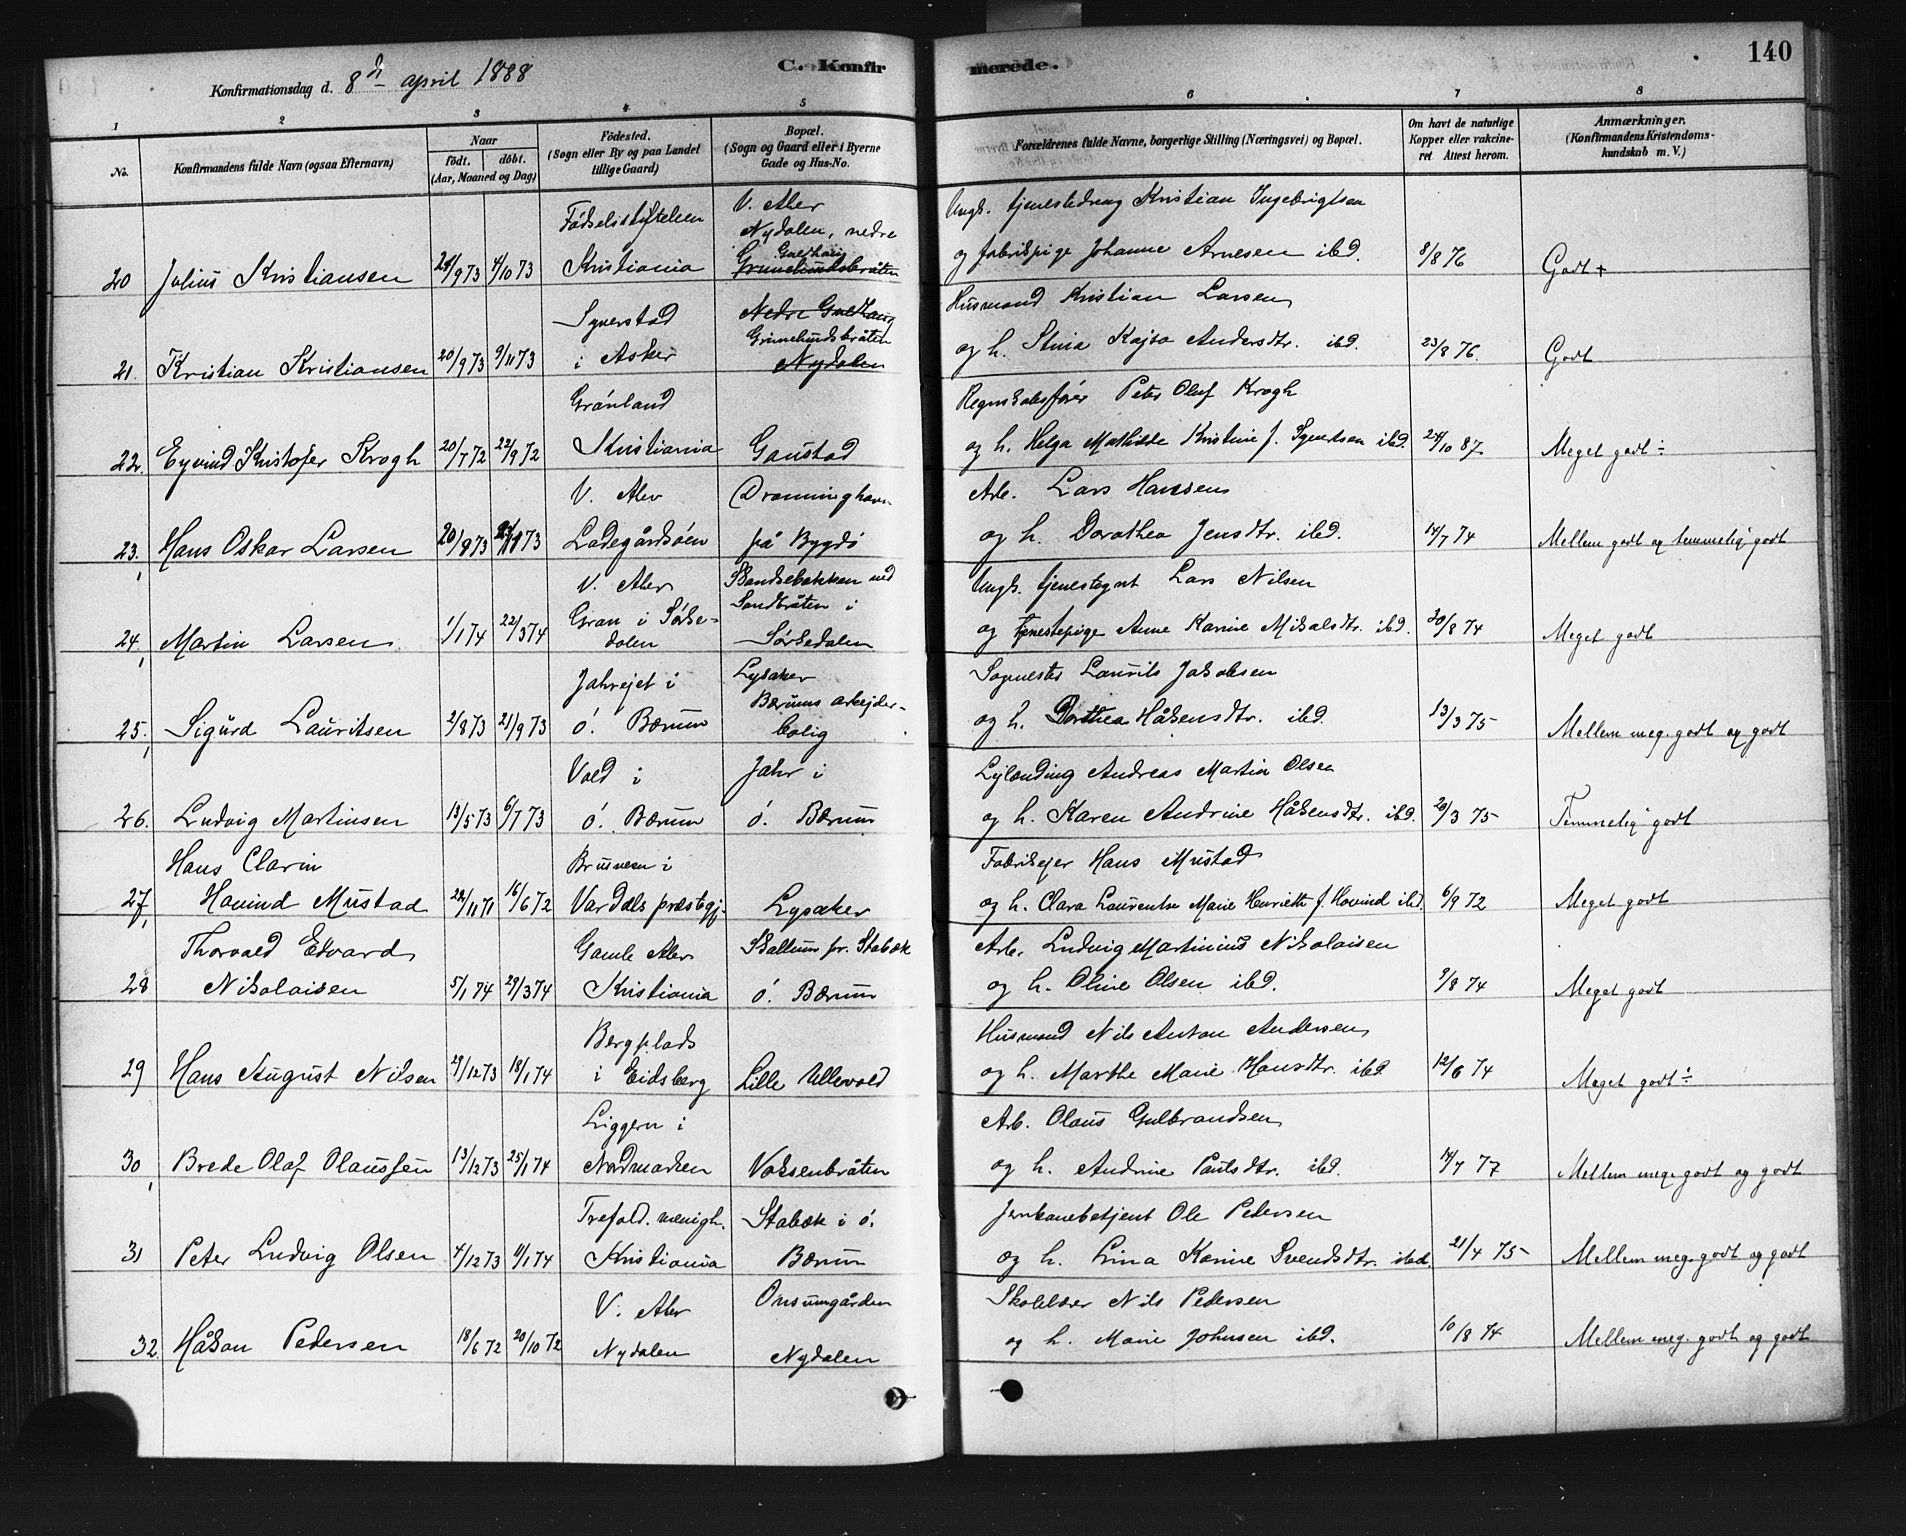 140
C. Konfirmerede.
Konfirmationsdag d. 8de april 1888
1 2 3 4 5 6 7 8
No.
Konfirmandens fulde Navn (ogsaa Efternavn)
Naar
födt. döbt.
(Aar, Maaned og Dag)
Födested.
(Sogn eller By og paa Landet
tillige Gaard)
Bopæl.
(Sogn og Gaard eller i Byerne
Gade og Hus-No.
Forældrenes fulde Navne, borgerlige Stilling (Næringsvei) og Bopæl.
Om havt de naturlige
Kopper eller vakcine-
ret Attest herom.
Anmærkninger.
(Konfirmandens Kristendoms-
kundskab m. V.)
Fødselsstiftelsen V. Aker Ungk. tjenestedreng Kristian Ingebrigtsen
Nydalen, nedre
Gulhaug
20 Julius Kristiansen 24/9 73 4/10 73 Kristiania Grimelundsbråten og fabrikpige Johanne Arnesen ibd. 8/8 76 Godt +
Syverstad Nedre Gulhaug Husmand Kristian Larsen
Grimelundsbråten
21. Kristian Kristiansen 20/9 73 9/11 73 i Asker Nydalen og h. Stina Kajsa Andersdtr. ibd. 23/8 76. Godt
Grønland Regnskabsfører Peter Oluf Krogh
22. Eyvind Kristofer Krogh 20/7 72 22/9 72 Kristiania Gaustad og h. Helga Mathilde Kristine f. Syvertsen ibd. 24/10 87 Meget godt ÷
V. Aker Dronninghavn Arb. Lars Hansen
23. Hans Oskar Larsen 20/9 73 73 Ladegårdsøen på Bygdø og h. Dorothea Jensdtr. ibd. 14/7 74 Mellem godt og temmelig godt
V. Aker ved Ungk. tjenestegut Lars Nilsen
Sandbråten i
24. Martin Larsen 1/1 74 22/3 74 Gran i Sørke-
dalen Sørkedalen og tjenestepige Anne Karine Mikalsdtr. ibd. 30/8 74 Meget godt
Jahrejet i Lysaker Laurits Jakobsen
Bærums arbejder-
25. Sigurd Lauritsen 2/8 73 21/9 73 ø. Bærum bolig og h. Dorthea Håkensdtr. ibd. 13/3 75 Mellem meg. godt og godt
Vold i Jahr i Andreas Martin Olsen
26. Ludvig Martinsen 13/5 73 6/7 73 ø. Bærum ø. Bærum og h. Karen Andrine Håkensdtr. ibd. 20/3 75 Temmelig godt
Hans Clarin Brusveen i Fabrikejer Hans Mustad
27. Hovind Mustad 22/11 71 16/6 72 Vardals præstegj. Lysaker og h. Clara Laurentse Marie Henriette f. Hovind ibd. 6/9 72 Meget godt
Thorvald Edvard Gamle Aker Skallum pr. Stabæk Arb. Ludvig Martinius Nikolaisen
28 Nikolaisen 5/1 74 29/3 74 Kristiania ø. Bærum og h. Oline Olsen ibd. 9/8 74 Meget godt
Bergplads Husmand Nils Anton Andersen
29 Hans August Nilsen 29/12 73 18/1 74 i Eidsberg Lille Ullevold og h. Marthe Marie Hansdtr. ibd 12/6 74 Meget godt ÷
Liggern i Arb. Olaus Gulbrandsen
30 Brede Olaf Olaussen 13/12 73 25/1 74 Nordmarken Voksenbråten og h. Andrine Paulsdtr. ibd. 14/7 77 Mellem meg. godt og godt
Trefold. menigh. Stabæk i ø. Jernbanebetjent Ole Pedersen
31 Peter Ludvig Olsen 4/12 73 11/1 74 Kristiania Bærum og h. Lina Karine Svendsdtr. ibd. 21/4 75 Mellem meg. godt og godt
V. Aker Onsumgården Skolelærer Nils Pedersen
32. Håkan Pedersen 18/6 72 20/10 72 Nydalen Nydalen og h. Marie Johnsen ibd. 10/8 74 Mellem meg. godt og godt